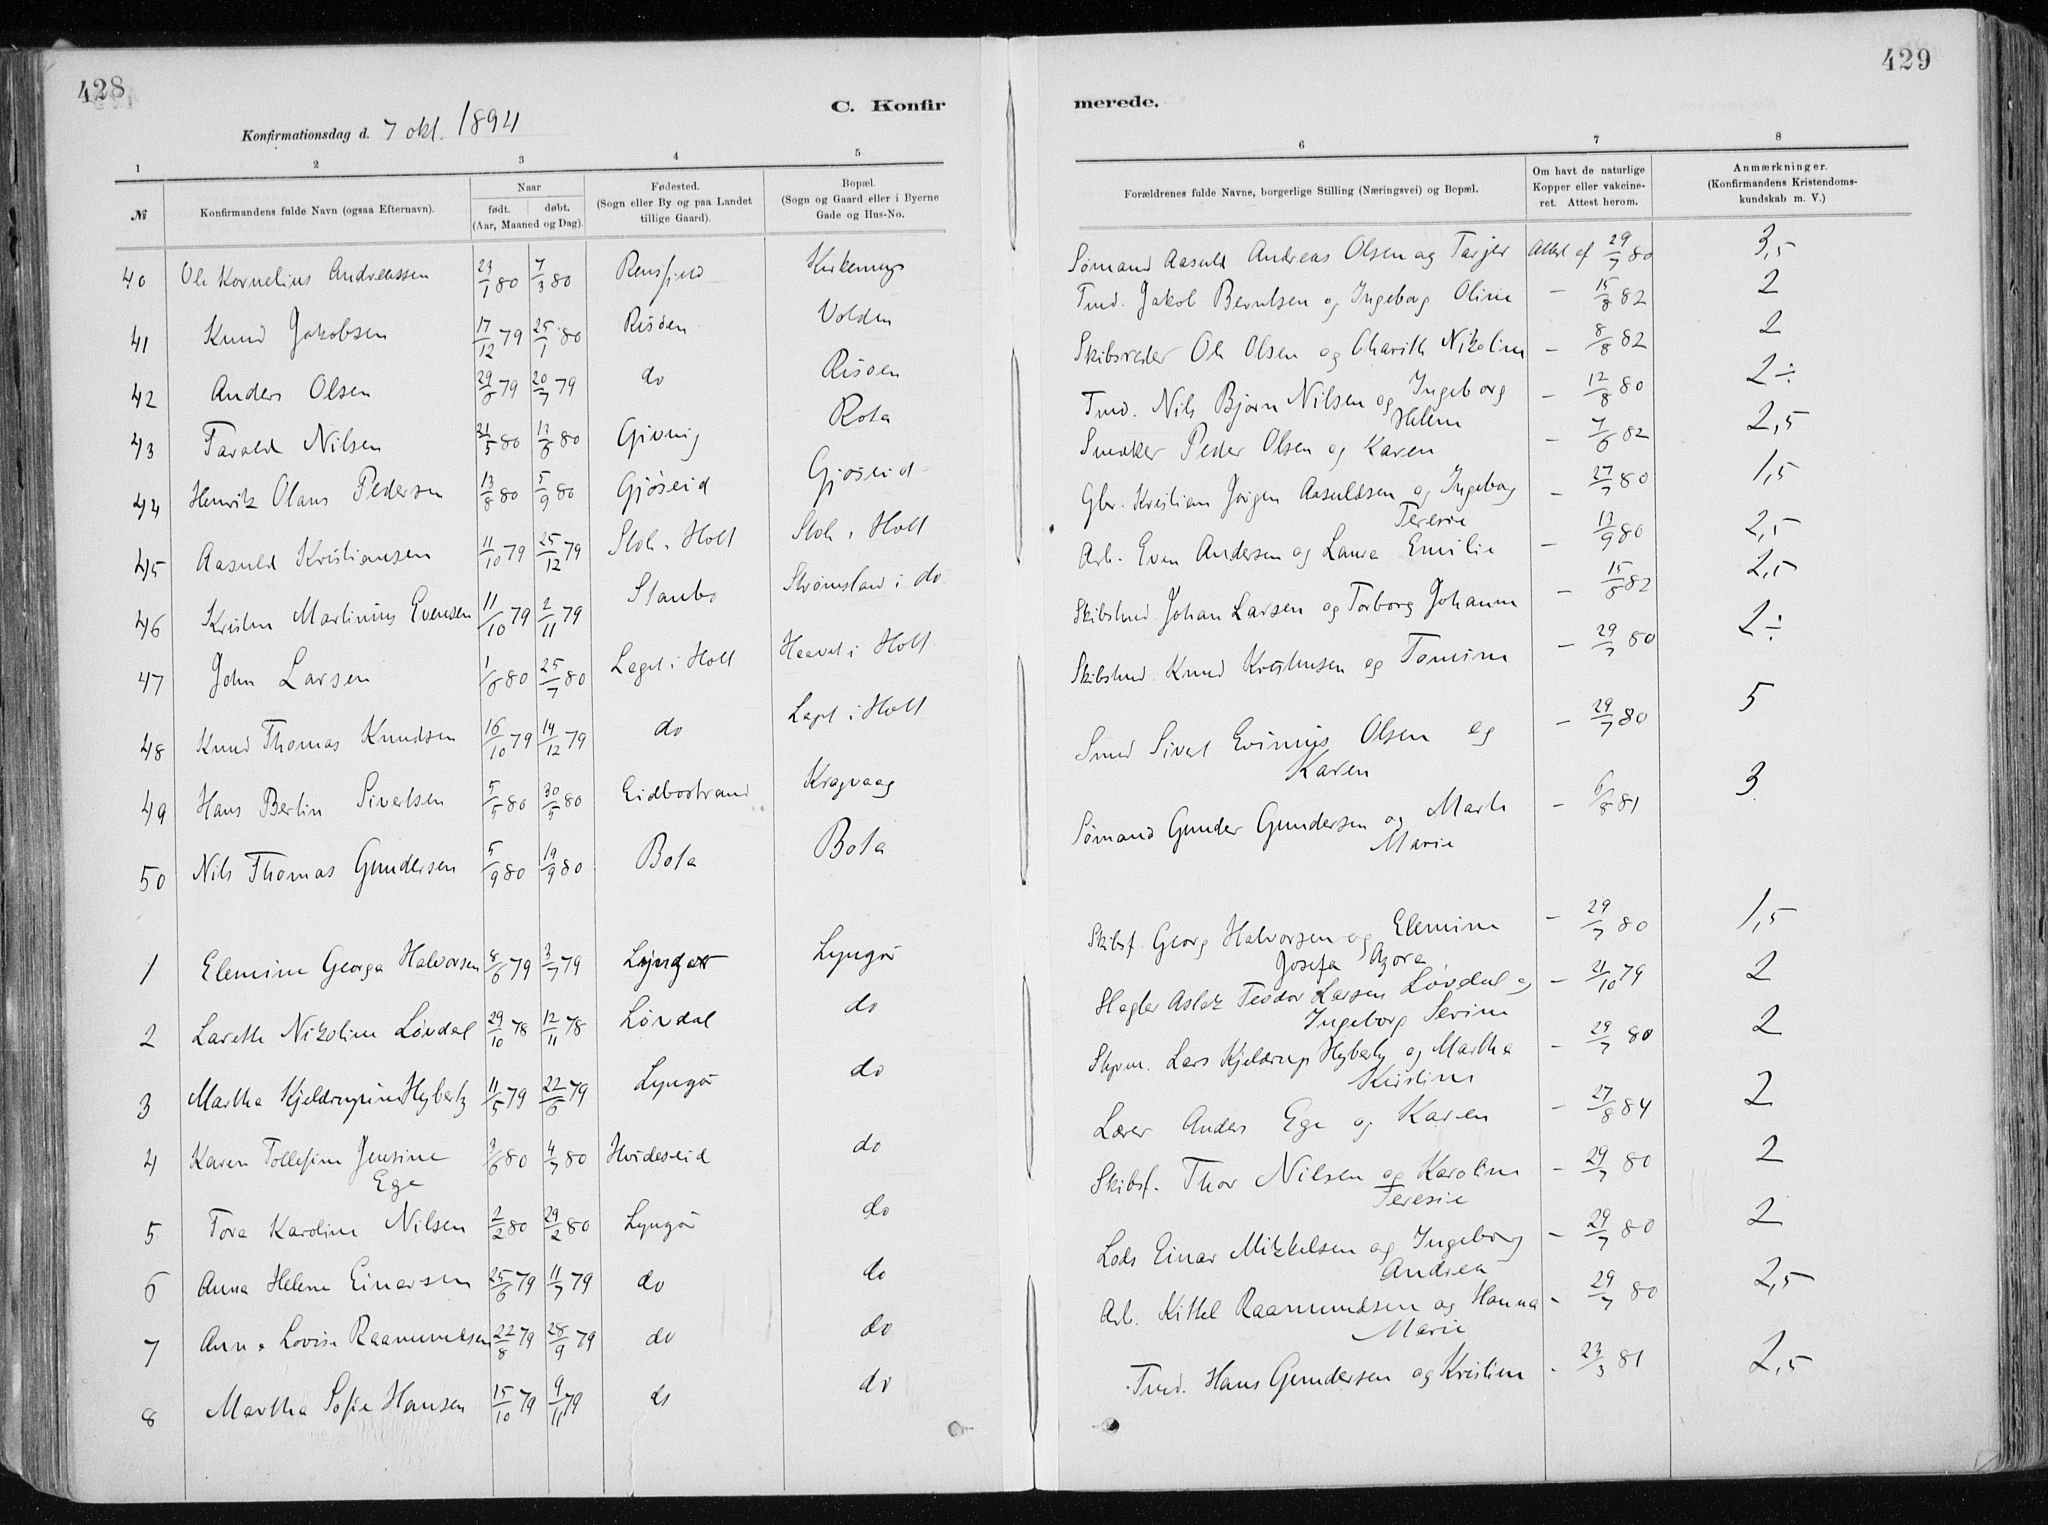 428
C. Konfir
Konfirmationsdag d. 7 okt. 1894
1 2 3 4 5
№ Konfirmandens fulde Navn (ogsaa Efternavn). Naar født. døbt. (Aar, Maaned og Dag). Fødested. (Sogn eller By og paa Landet tillige Gaard). Bopæl. (Sogn og Gaard eller i Byerne Gade og Hus-No.
40 Ole Kornelius Andreassen 23/1 80 7/3 80
41 Knud Jakobsen 17/12 79 25/1 80 Risøen Volden
42 Anders Olsen 29/6 79 20/7 79 do Risøen
43 Tarald Nilsen 21/5 80 13/6 80 Givning Rota
44 Henrik Olaus Pedersen 13/8 80 5/9 80 Gjøseid Gjøseid
45 Aasuld Kristiansen 11/10 79 25/12 79 i Holt i Holt
46 Martinius Evensen 11/10 79 2/11 79 Staubo i do
47 John Larsen 1/6 80 25/7 80 Laget i Holt i Holt
48 Knud Thomas Knudsen 16/10 79 14/12 79 do Laget i Holt
49 Hans Bertin Sivertsen 5/5 80 30/5 80 Eidbostrand Kragvaag
50 Nils Thomas Gundersen 5/9 80 19/9 80 Bota Bota
1 Elemine Georga Halvorsen 8/6 79 3/7 79 Lyngør Lyngør
2 Nikoline Løvdal 29/10 78 12/11 78 Løvdal do
3 Martha Kjeldrupine Hybertz 11/5 79 22/6 79 Lyngør do
4 Karen Tollefine Jensine 3/6 80 4/7 80 Hvideseid do
Ege
5 Tora Karoline Nilsen 2/2 80 29/2 80 Lyngør do
6 Anna Helene Einarsen 25/6 79 11/7 79 do do
7 Anna Lovise Raamundsen 22/8 79 28/9 79 do do
8 Martha Sofie Hansen 15/10 79 9/11 79 do do
429
merede.
6 7 8
Forældrenes fulde Navne, borgerlige Stilling (Næringsvei) og Bopæl. Om havt de naturlige Kopper eller vakcineret. Attest herom. Anmærkninger. (Konfirmandens Kristendomskundskab m. V.)
Sømand Aasuld Andreas Olsen og Tarjer Attest af 29/7 80 3,5
Tmd. Jakob Berntsen og Ingeborg Oline - 15/8 82 2
Skibsreder Ole Olsen og Nikoline - 8/8 82 2
Tmd. Nils Bjørn Nilsen og Ingeborg - 12/8 80 2÷
Helene
Snedker Peder Olsen og Karen - 7/6 82 2,5
Gbr. Kristian Jørgen Aasuldsen og Ingeborg - 27/7 80 1,5
Teresie
Arb. Even Andersen og Laura Emilie - 13/9 80 2,5
Skibstmd. Johan Larsen og Torborg Johanne - 15/8 82 2,5
Skibstmd. Knud og Tomine - 29/7 80 2÷
Smed Sivert Evinius Olsen og - 29/7 80 5
Karen
Sømand Gunder Gundersen og - 6/8 81 3
Marie
Skibsf. Georg Halvorsen og Elemine - 29/7 80 1,5
Josefa
Aslak Teodor Larsen Løvdal og - 21/10 79 2
Ingeborg Serine
Styrm. Lars Kjeldrup Hybertz og Martha - 29/7 80 2
Kristine
Lærer Anders Ege og Karen - 27/8 84 2
Skibsf. Thor Nilsen og Karoline - 29/7 80 2
Teresie
Lods Einar Mikkelsen og Ingeborg - 29/7 80 2
Andrea
Arb. Kittel Raamundsen og Hanna - 29/7 80 2,5
Marie
Tmd. Hans Gundersen og Kristine - 23/3 81 2,5